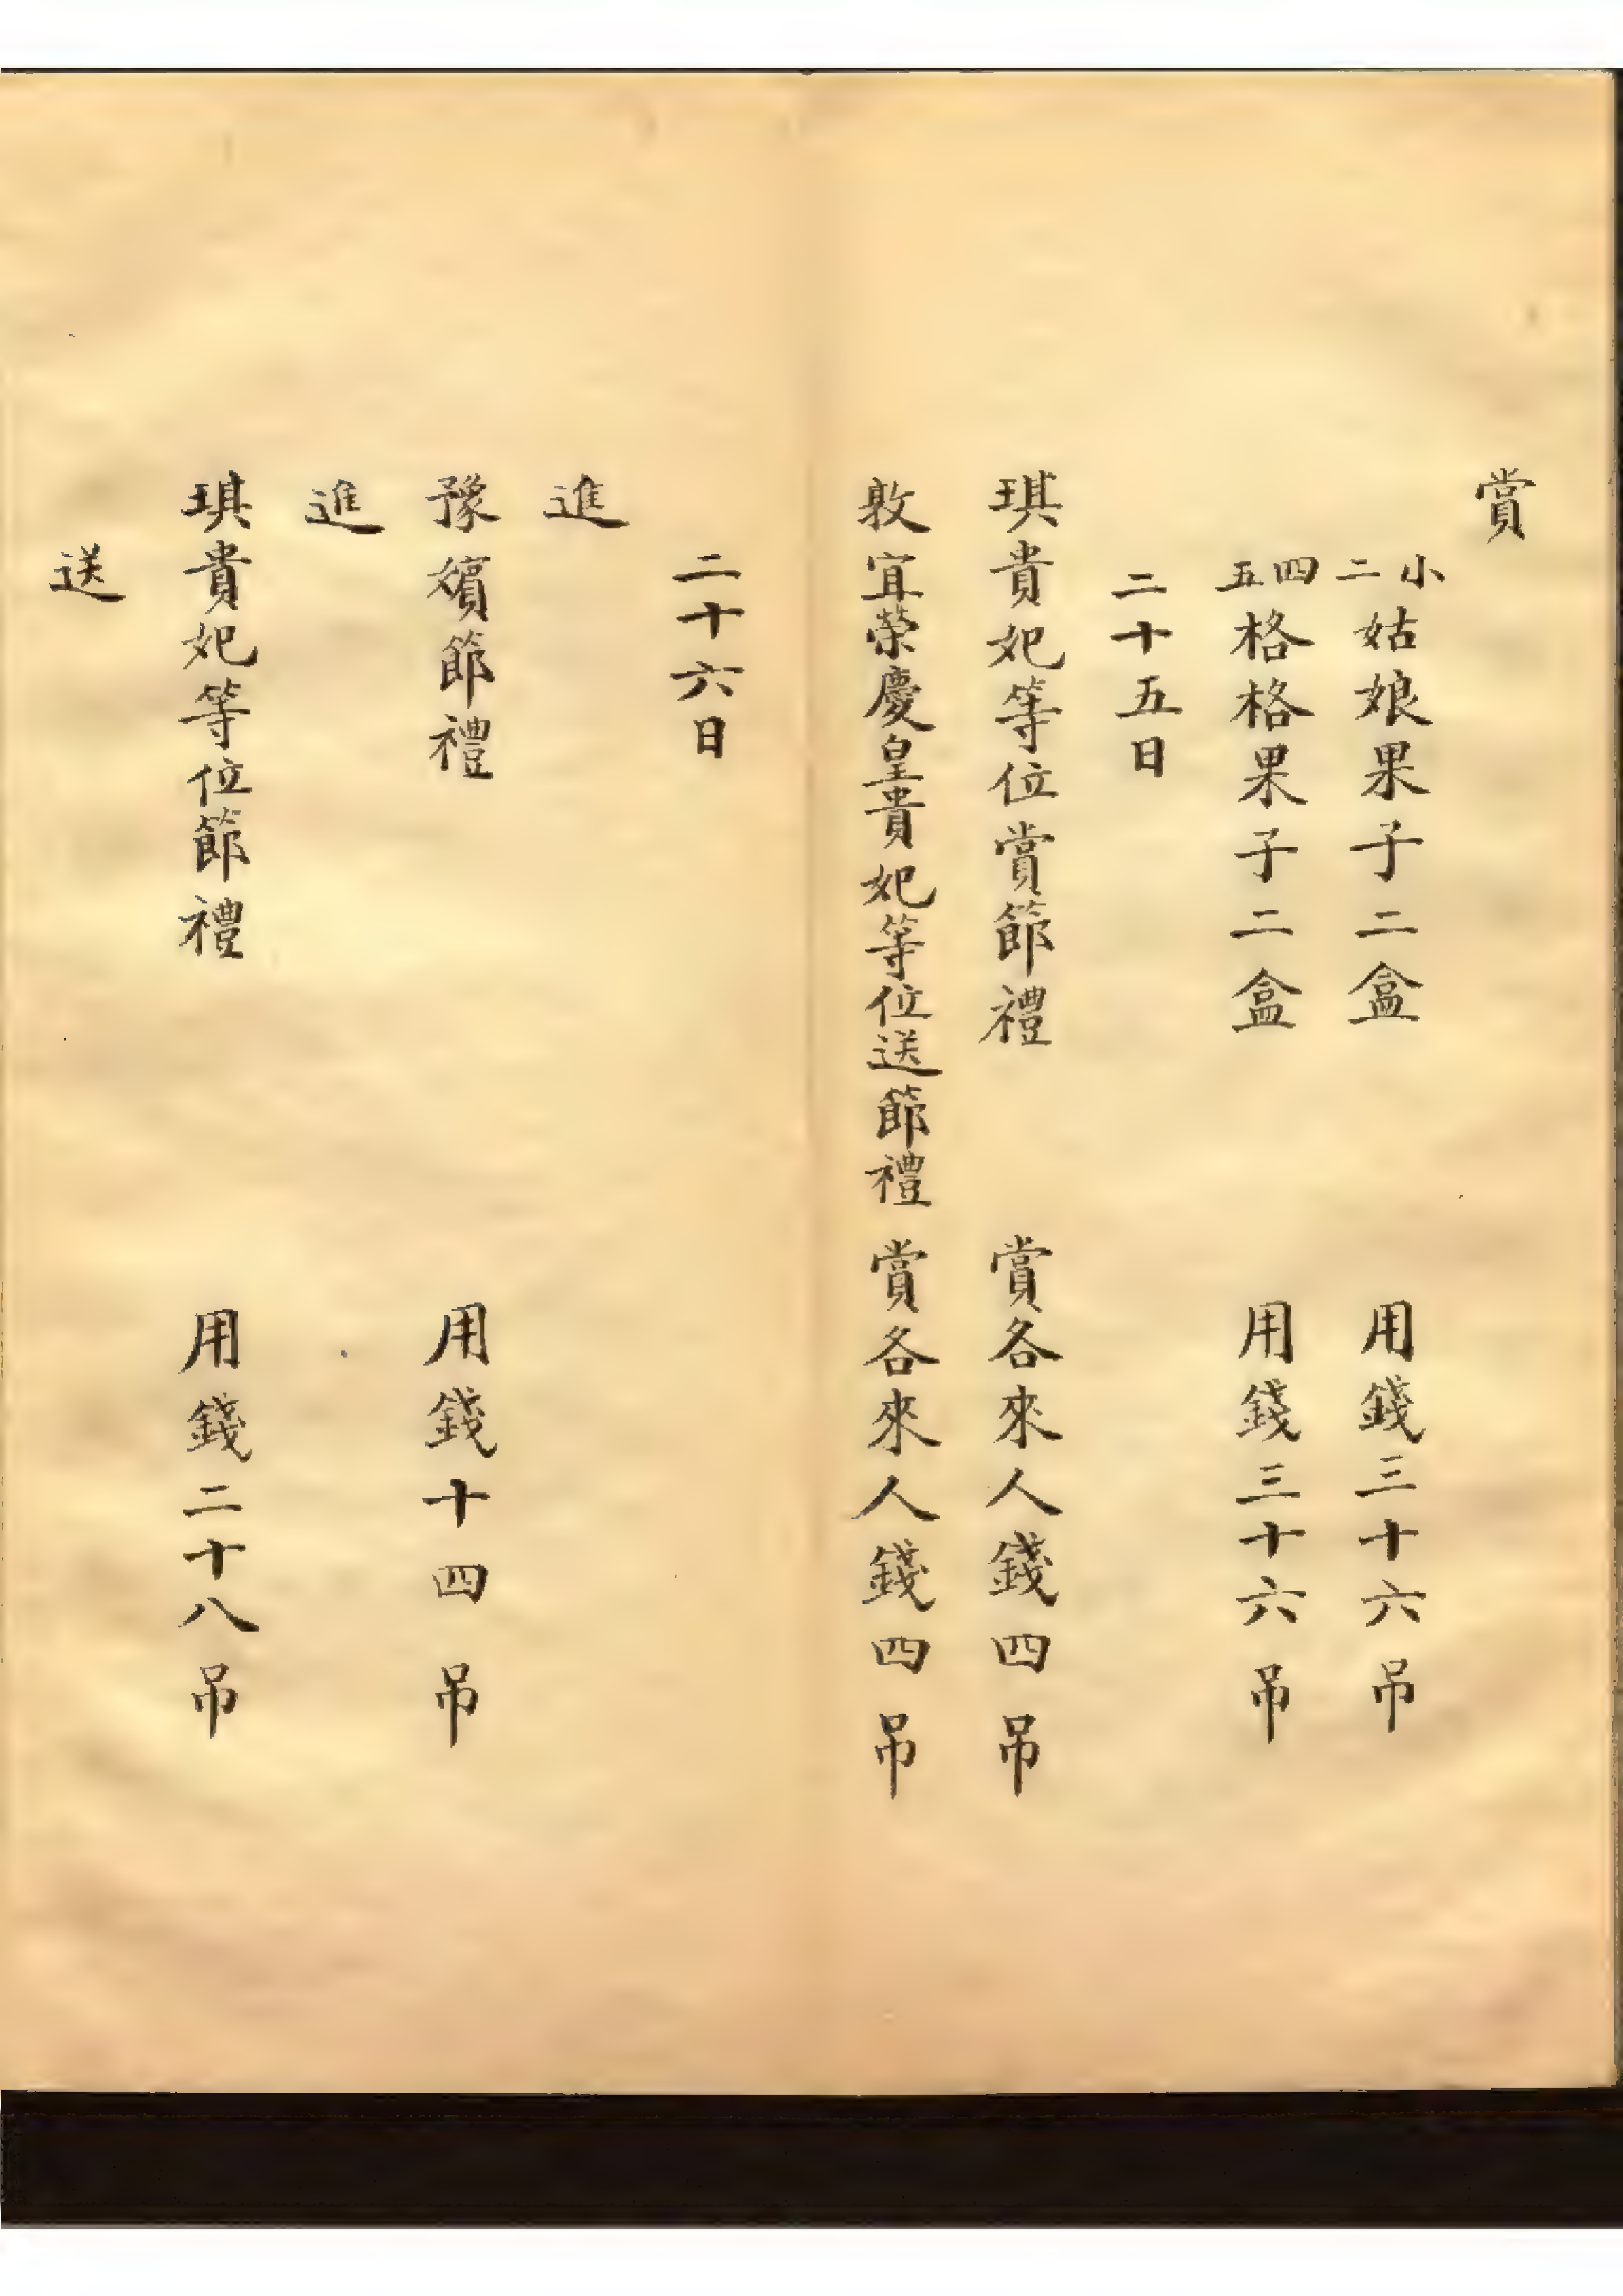 賞
小二姑娘果子二盒 用錢三十六吊
四五格格果子二盒 用錢三十六吊
二十五日
琪貴妃等位賞節禮 賞各來人錢四吊
敦宜榮慶皇貴妃等位送節禮 賞各來人錢四吊
二十六日
進
豫嬪節禮 用錢十四吊
進
琪貴妃等位節禮 用錢二十八吊
送